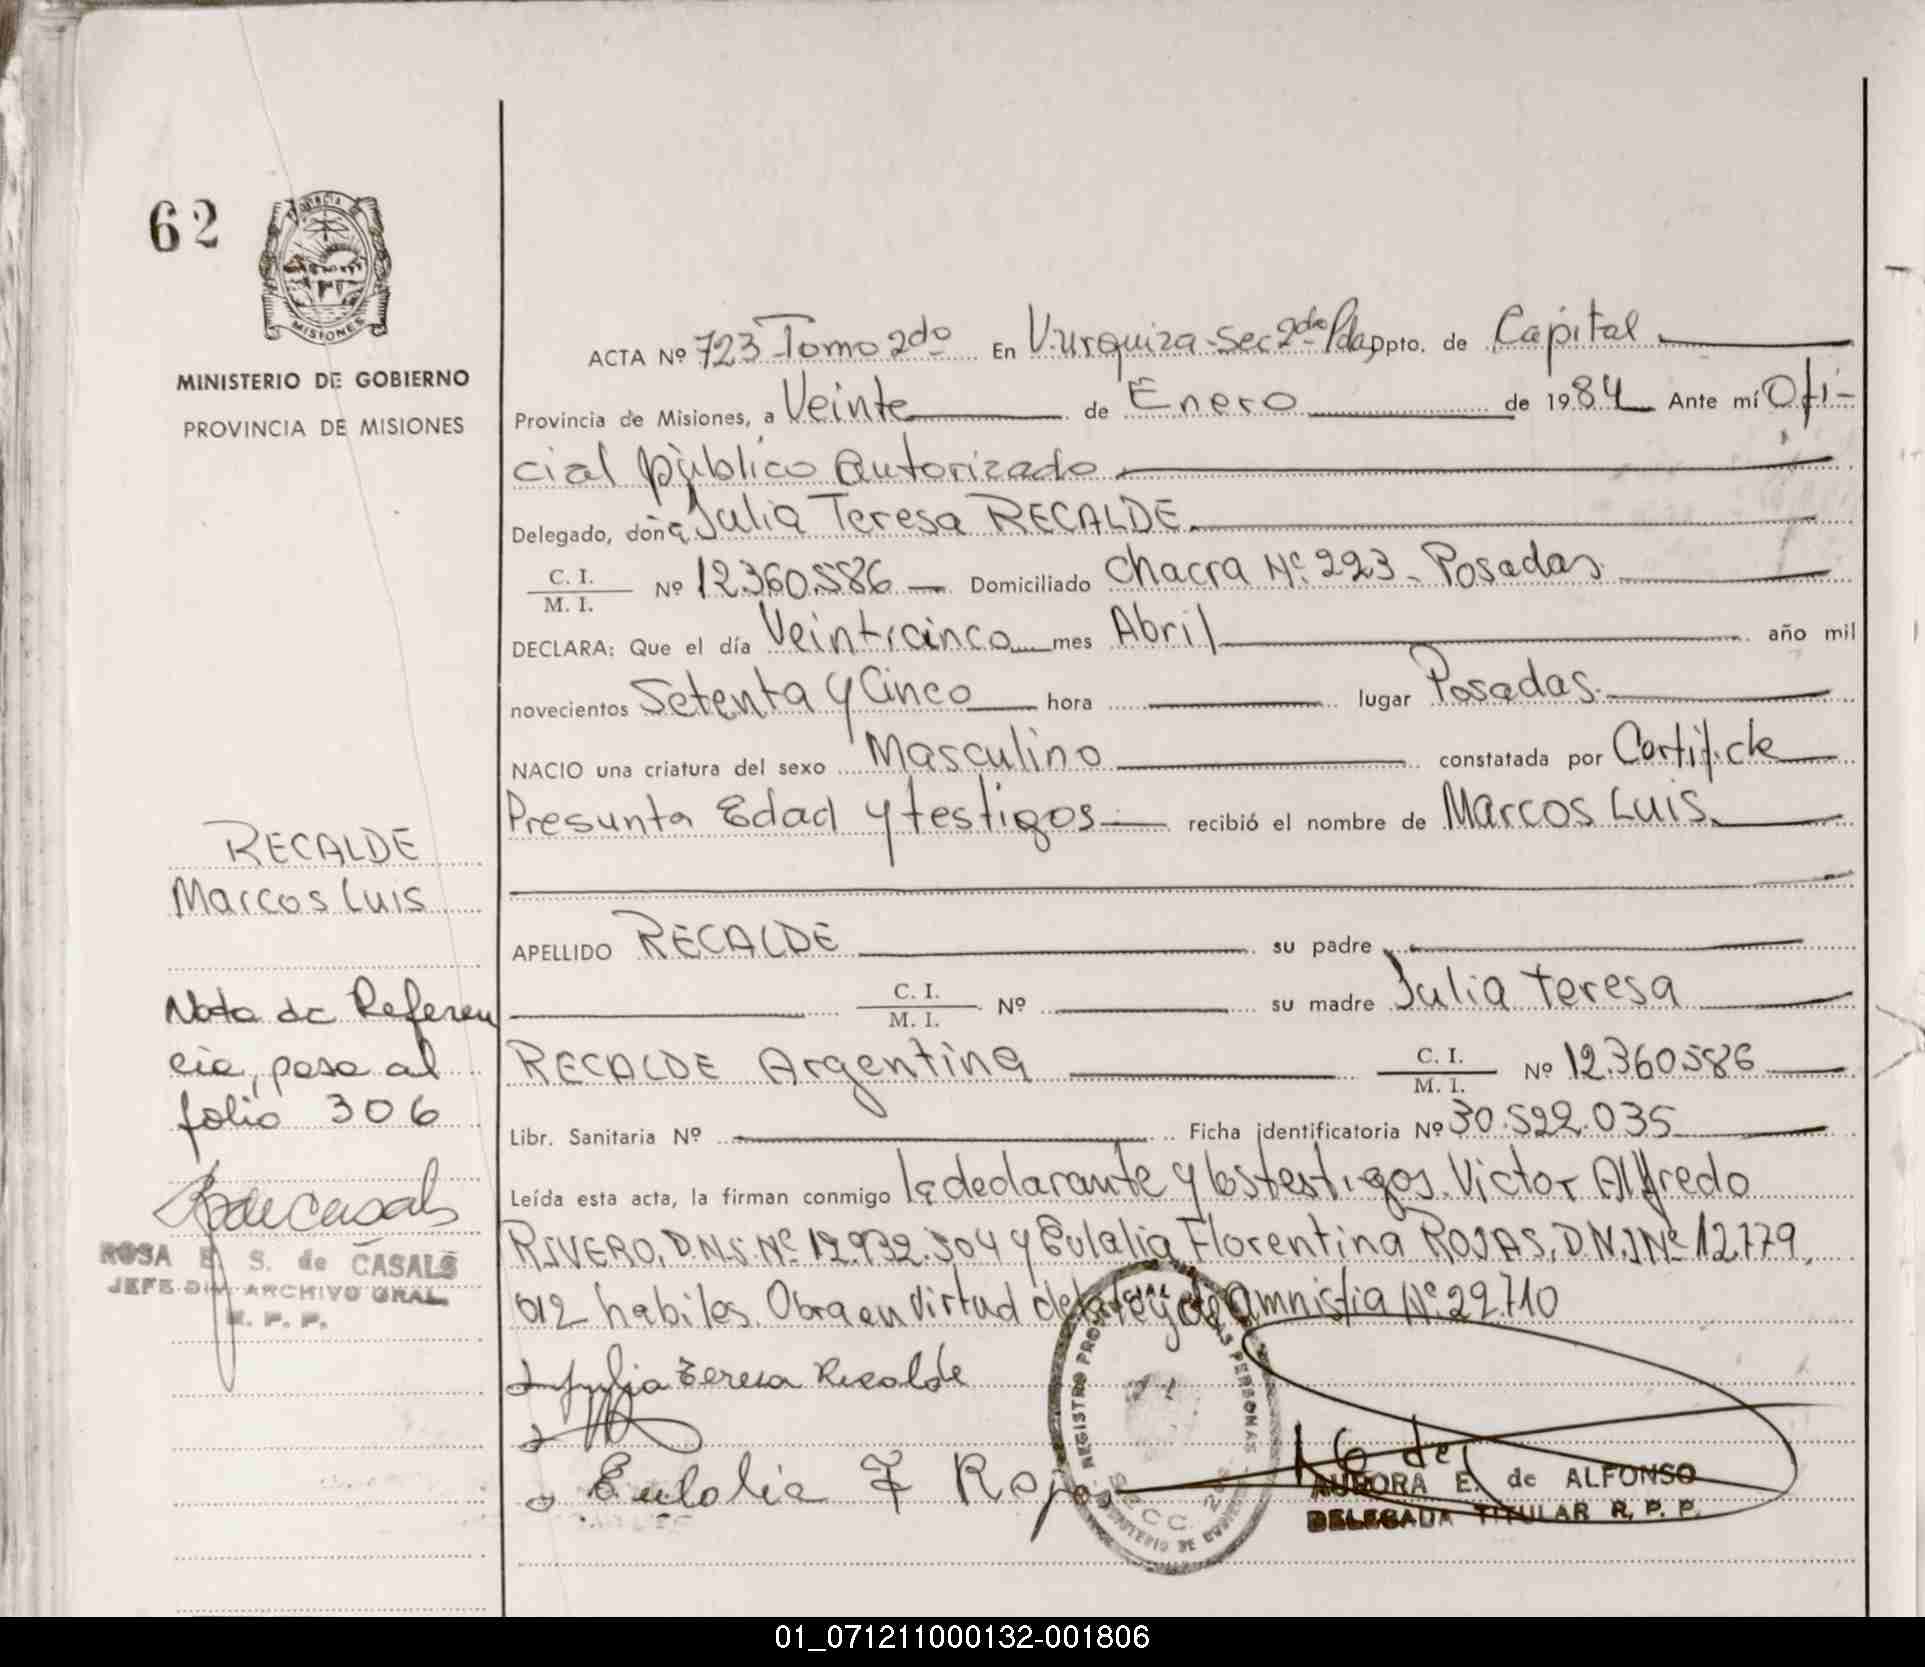 62
PROVINCIA
MISIONES
MINISTERIO DE GOBIERNO
PROVINCIA DE MISIONES
RECALDE
Marcos Luis
Nota de Referen
cia, pasa al
folio 306
RdeCasals
ROSA E. S. de CASALS
JEFE DIV. ARCHIVO GRAL.
R. P. P.
ACTA Nº 723 Tomo 2do En V.Urquiza-Sec 2da Pdas Dpto. de Capital
Provincia de Misiones, a Veinte de Enero de 1984 Ante mí Ofi-
cial público Autorizado
Delegado, doña Julia Teresa RECALDE.
C. I.
M. I. Nº 12.360.586 Domiciliado Chacra Nº 223 - Posadas
DECLARA: Que el día Veinticinco mes Abril año mil
novecientos Setenta y Cinco hora lugar Posadas.
NACIO una criatura del sexo Masculino constatada por Certif.cde
Presunta Edad y testigos recibió el nombre de Marcos Luis.
APELLIDO RECALDE su padre
C. I.
M. I. Nº su madre Julia teresa
RECALDE Argentina C. I.
M. I. Nº 12.360.586
Libr. Sanitaria Nº Ficha identificatoria Nº 30.522.035
Leída esta acta, la firman conmigo la declarante y los testigos. Victor Alfredo
RIVERO, D.N.I. Nº 12.932.504 y Eulalia Florentina ROJAS, D.N.I Nº 12.779.
012 habiles. Obra en virtud de la ley de Amnistia Nº 22.710
Julia Teresa Recalde
Eulalia F Rojas
REGISTRO PROVINCIAL DE LAS PERSONAS
SECC. 2da
MINISTERIO DE GOBIERNO
AURORA E. de ALFONSO
DELEGADA TITULAR R. P. P.
01_071211000132-001806